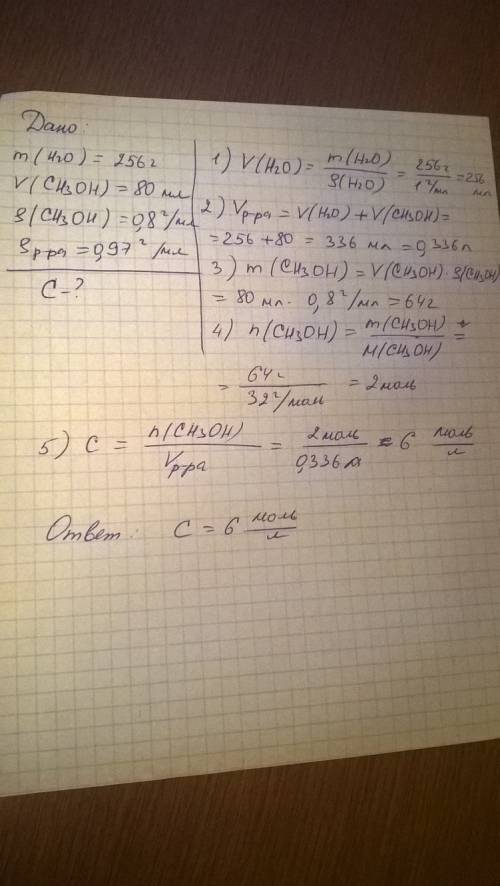 Дано:
m(H₂O) = 256г
V(CH₃OH) = 80 мл
ρ(CH₃OH) = 0,8 г/мл
ρр-ра = 0,97 г/мл
C - ?
1) V(H₂O) = m(H₂O)/ρ(H₂O) = 256г/1 г/мл = 256 мл
2) Vр-ра = V(H₂O) + V(CH₃OH) =
= 256 + 80 = 336 мл = 0,336л
3) m(CH₃OH) = V(CH₃OH) · ρ(CH₃OH)
= 80 мл · 0,8 г/мл = 64г
4) n(CH₃OH) = m(CH₃OH)/M(CH₃OH) =
= 64г/32 г/моль = 2 моль
5) C = n(CH₃OH)/Vр-ра = 2 моль/0,336л = 6 моль/л
Ответ: C = 6 моль/л